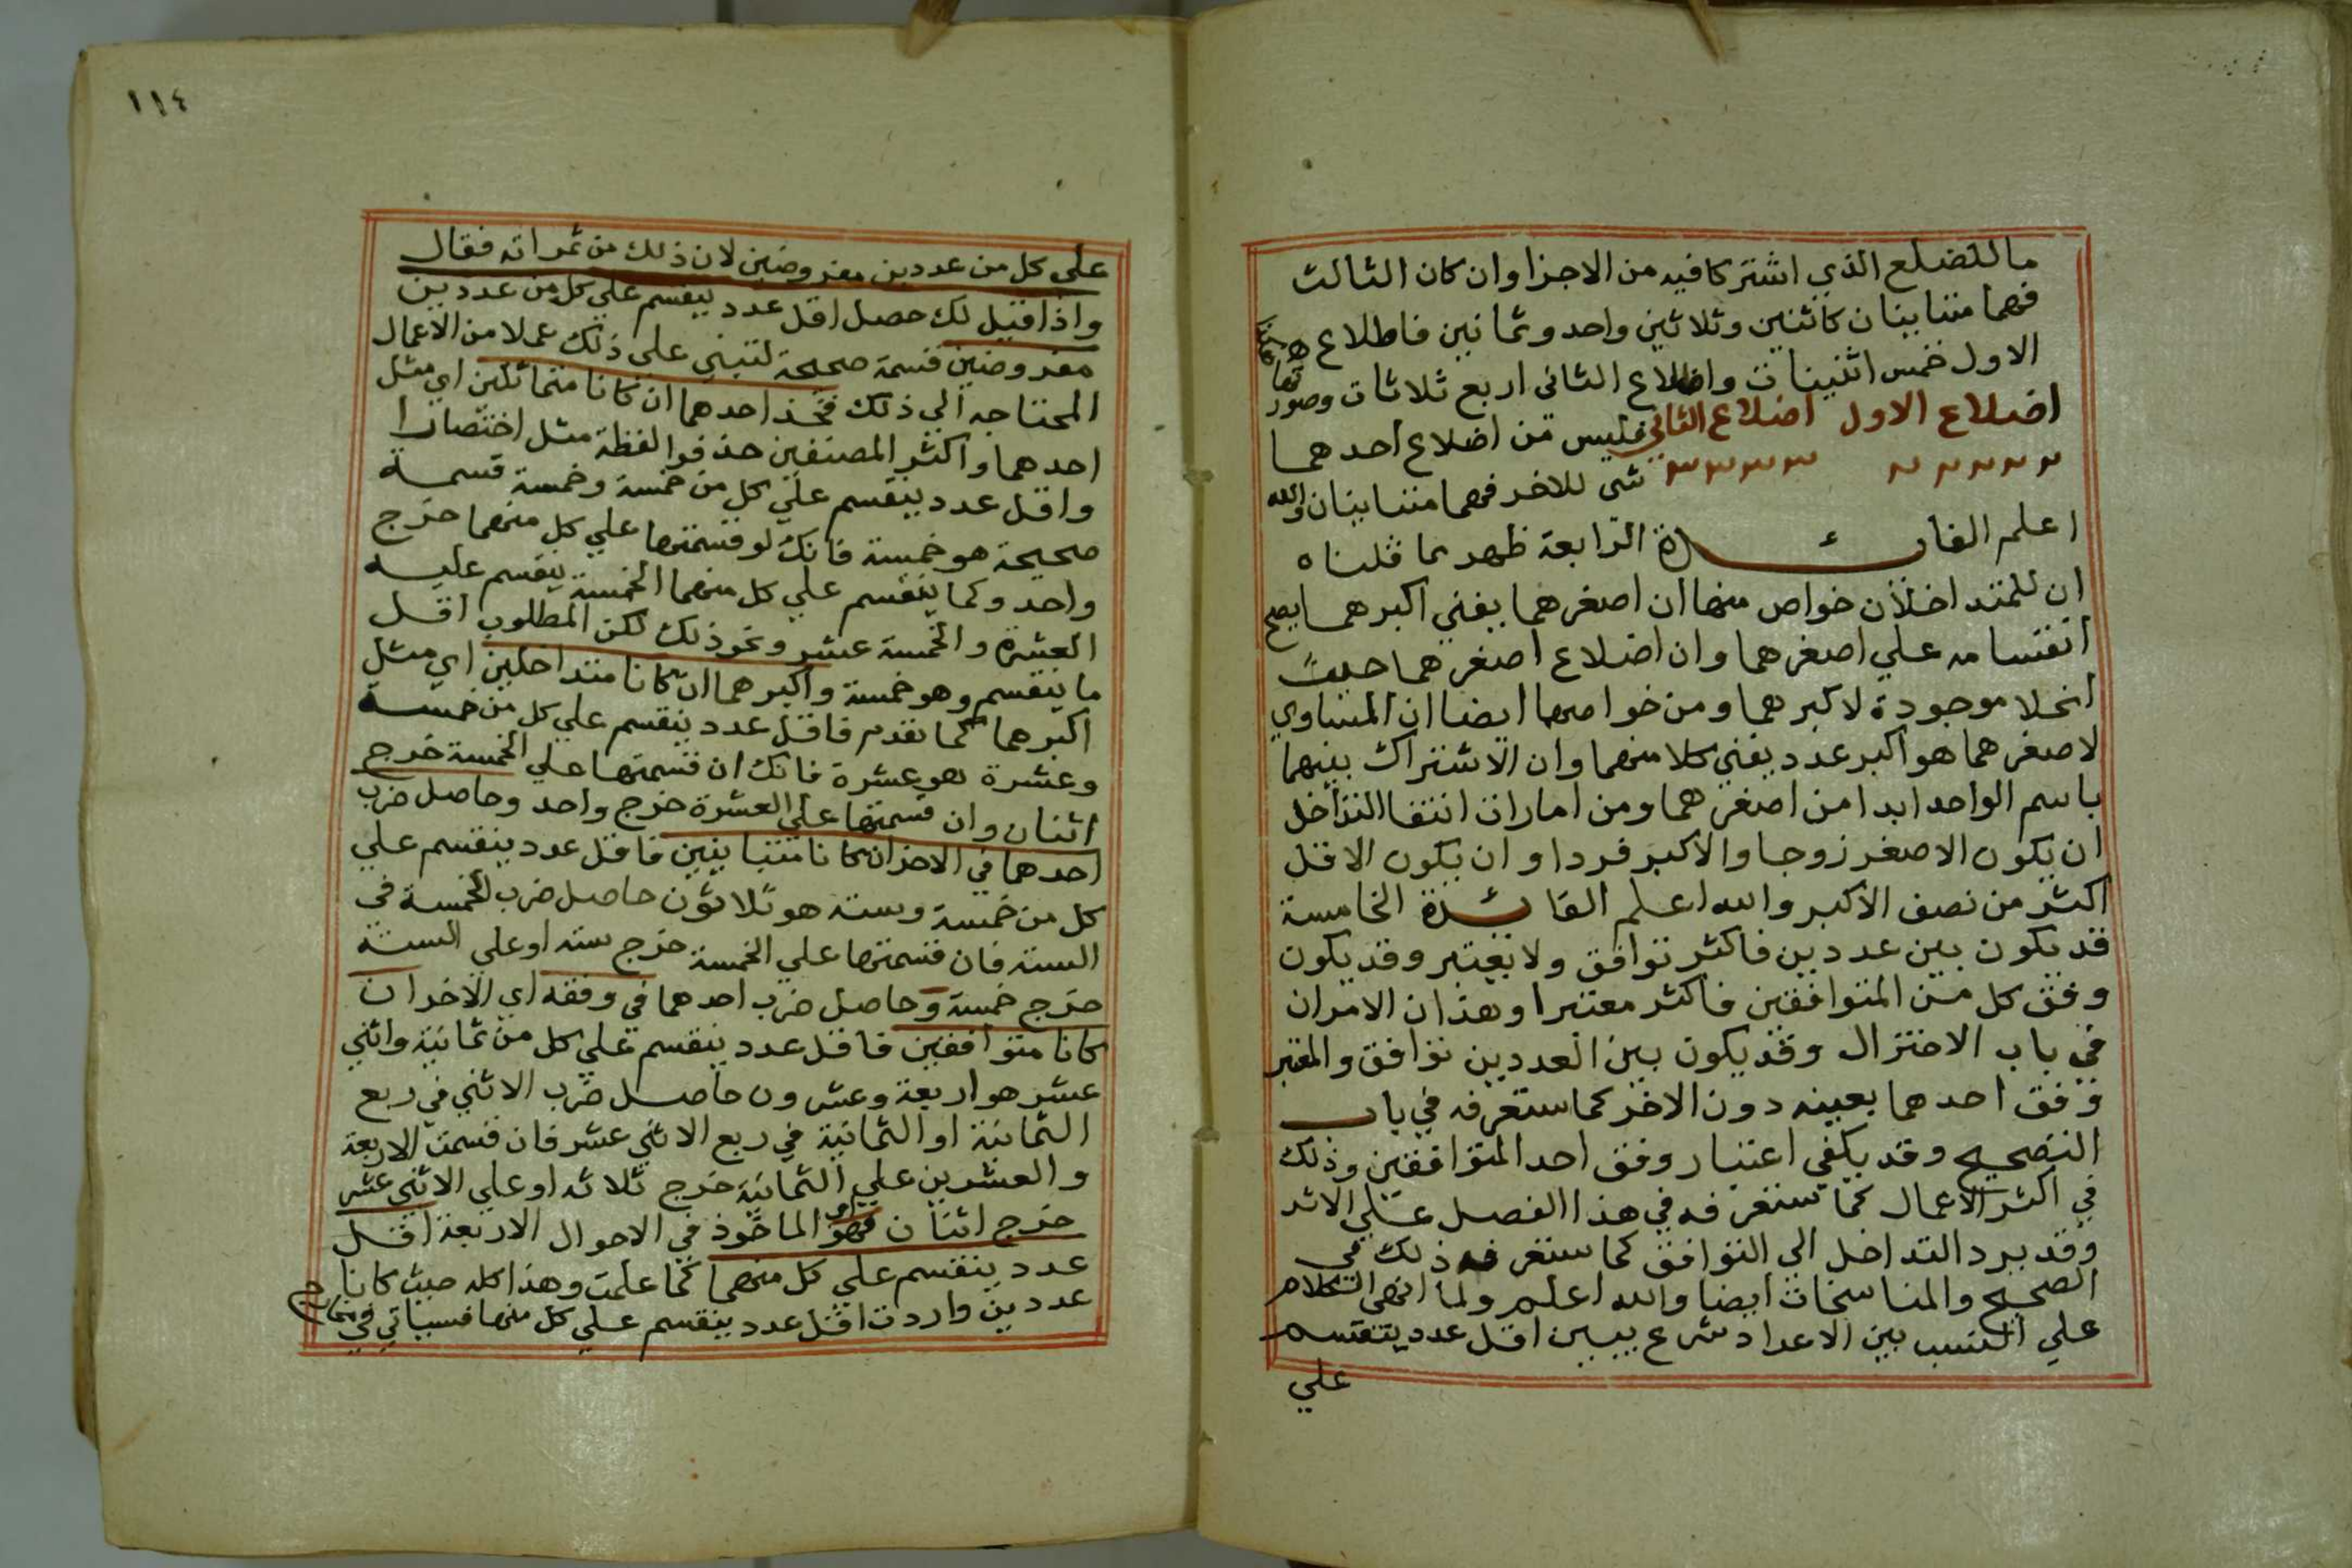 ما للضلع الذي اشتركا فيه من الاجزا وان كان الثالث
فهما متباينان كاثنين وثلاثين واحد وثمانين فاضلاع
الاول خمس اثنينات واضلاع الثاني اربع ثلاثات وصورتها هكذا
اضلاع الاول اضلاع الثاني فليس من اضلاع احدهما
٢ ٢ ٢ ٢ ٢ ٣ ٣ ٣ ٣ شي للاخر فهما متباينان والله
اعلم الفائدة الرابعة ظهر مما قلناه
ان للمتداخلان خواص منها ان اصغرهما يفني اكبرهما يصح
انقسامه علي اصغرهما وان اضلاع اصغرهما حيث
انحلا موجودة لاكبرهما ومن خواصهما ايضا ان المساوي
لاصغرهما هو اكبر عدد يفني كلا منهما وان الاشتراك بينهما
باسم الواحد ابدا من اصغرهما ومن امارات انتفا التداخل
ان يكون الاصغر زوجا والاكبر فردا وان يكون الاقل
اكثر من نصف الاكبر والله اعلم الفائدة الخامسة
قد يكون بين عددين فاكثر توافق ولا يعتبر وقد يكون
وفق كل من المتوافقين فاكثر معتبرا وهذان الامران
في باب الاختزال وقد يكون بين العددين توافق والمعتبر
وفق احدهما بعينه دون الاخر كما ستعرفه في باب
التصحيح وقد يكفي اعتبار وفق احد المتوافقين وذلك
في اكثر الاعمال كما ستعرفه في هذا الفصل علي الاثر
وقد يرد التداخل الي التوافق كما ستعرفه ذلك في
الصحيح والمناسخات ايضا والله اعلم ولما انهي الكلام
علي النسب بين الاعداد شرع يبين اقل عدد ينقسم
علي
١١٤
علي كل من عددين مفروضين لان ذلك من ثمراته فقال
واذا قيل لك حصل اقل عدد ينقسم علي كل من عددين
مفروضين قسمة صحيحة لتبني علي ذلك عملا من الاعمال
المحتاجه الي ذلك فخذ احدهما ان كانا متماثلين اي مثل
احدهما واكثر المصنفين حذفوا لفظة مثل اختصارا
واقل عدد ينقسم علي كل من خمسة وخمسة قسمة
صحيحة هو خمسة فانك لو قسمتها علي كل منهما خرج
واحد وكما ينقسم علي كل منهما الخمسة ينقسم عليه
العشرة والخمسة عشر ونحو ذلك لكن المطلوب اقل
ما ينقسم وهو خمسة واكبرهما ان كانا متداخلين اي مثل
اكبرهما كما تقدم فاقل عدد ينقسم علي كل من خمسة
وعشرة هو عشرة فانك ان قسمتها علي الخمسة خرج
اثنان وان قسمتها علي العشرة خرج واحد وحاصل ضرب
احدهما في الاخر ان كانا متباينين فاقل عدد ينقسم علي
كل من خمسة وستة هو ثلاثون حاصل ضرب الخمسة في
الستة فان قسمتها علي الخمسة خرج سته او علي الستة
خرج خمسة وحاصل ضرب احدهما في وفقه اي الاخر ان
كانا متوافقين فاقل عدد ينقسم علي كل من ثمانية واثني
عشر هو اربعة وعشرون حاصل ضرب الاثني في ربع
الثمانية او الثمانية في ربع الاثني عشر فان قسمت الاربعة
والعشرين علي الثمانية خرج ثلاثه او علي الاثني عشر
خرج اثنان فهو اي الماخوذ في الاحوال الاربعة اقل
عدد ينقسم علي كل منهما كما علمت وهذا كله حيث كانا
عددين واردت اقل عدد ينقسم علي كل منها فسياتي في مخارج